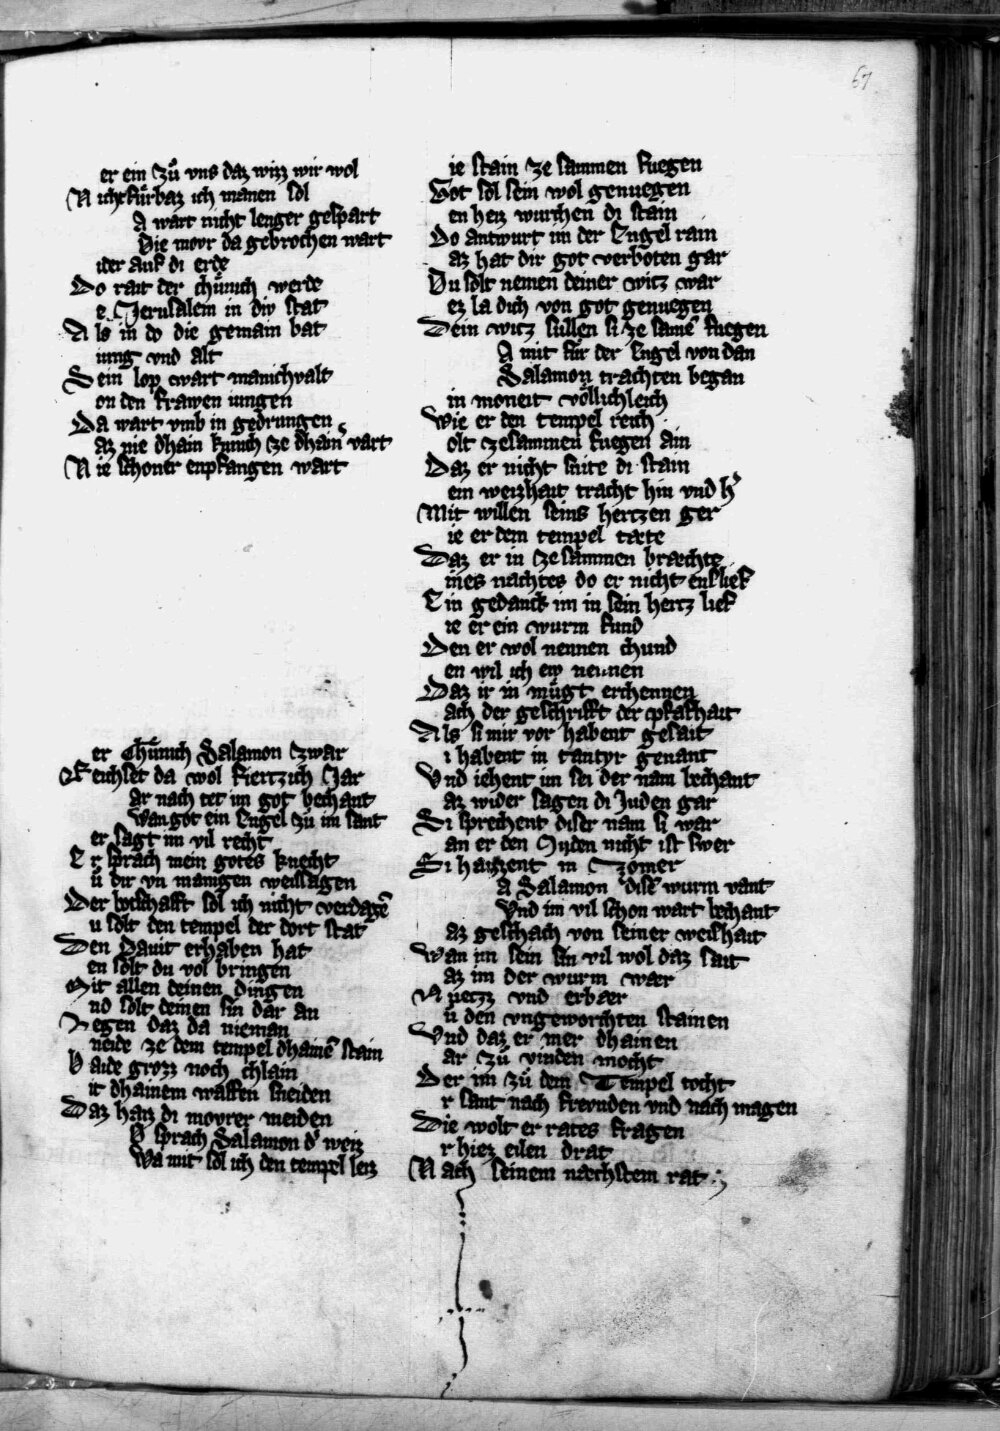 67
er ein zů vns daz wizz wir wol
Nicht fůrbaz ich manen sol
A wart nicht lenger gespart
Die movr da gebrochen wart
ider auf di erde
Do rait der chůnich werde
e Jerusalem in div stat
Als in do die gemain bat
iung vnd alt
Sein lop wart manichvalt
on den frawen iungen
Da wart vmb in gedrungen
az nie dhain kunich ze dhainē vart
Nie schoner enpfangen wart
er Chůnich Salamon zwar
Reichset da wol fiertzich Jar
ar nach tet im got bechant
Wan got ein Engel zů im sant
er sagt im vil recht
Er sprach mein gotes knecht
ů dir vn manigen weissagen
Der botschafft sol ich nicht verdagē
u solt den tempel der dort stat
Den Dauit erhaben hat
en solt du vol bringen
Mit allen deinen dingen
nd solt deinen sin dar an
Legen daz da nieman
neide ze dem tempel dhainē stain
Waide grozz noch chlain
it dhainem waffen sneiden
Daz haiz di movrer meiden
O sprach Salamon d' weiz
Wa mit sol ich den tempel leiz
ie stain ze sammen fuegen
Got sol sein wol genuegen
en heiz wurchen di stain
Do antwurt im der Engel rain
az hat dir got verboten gar
Du solt nemen deiner witz war
ez la dich von got genuegen
Dein witz sullen si ze samē fuegen
A mit fůr der Engel von dan
Salamon trachten began
in moneit vollichleich
Wie er den tempel reich
olt zesammen fuegen ain
Daz er nicht snite di stain
ein weizhait tracht hin vnd h'
Mit willen seins hertzen ger
ie er dem tempel tæte
Daz er in ze sammen bræchte
ines nachtes do er nicht enslief
Ein gedanck im in sein hertz lief
ie er ein wurm fund
Den er wol nennen chund
en wil ich ew nennen
Daz ir in můgt erchennen
ach der geschrifft der pfafhait
Als si mir vor habent gesait
i habent in tantyr genant
Vnd iehent im sei der nam bechant
az wider sagen di Juden gar
Si sprechent diser nam si war
an er den Juden nicht ist swer
Si haizzent in Tzomer
A Salamon disē wurm vant
Vnd im vil schon wart bechant
az geschach von seiner weishait
Wan im sein sin vil wol daz sait
az im der wurm wær
Nvetz vnd erbær
ů den vngeworchten stainen
Vnd daz er mer dhainen
ar zů vinden mocht
Der im zů dem Tempel tocht
r sant nach frevnden vnd nach magen
Die wolt er rates fragen
r hiez eilen drat
Nach seinem næchstem rat